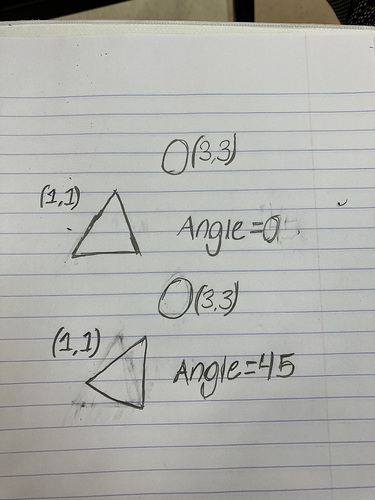 (3,3)
(1,1)
Angle=0
(3,3)
(1,1)
Angle=45